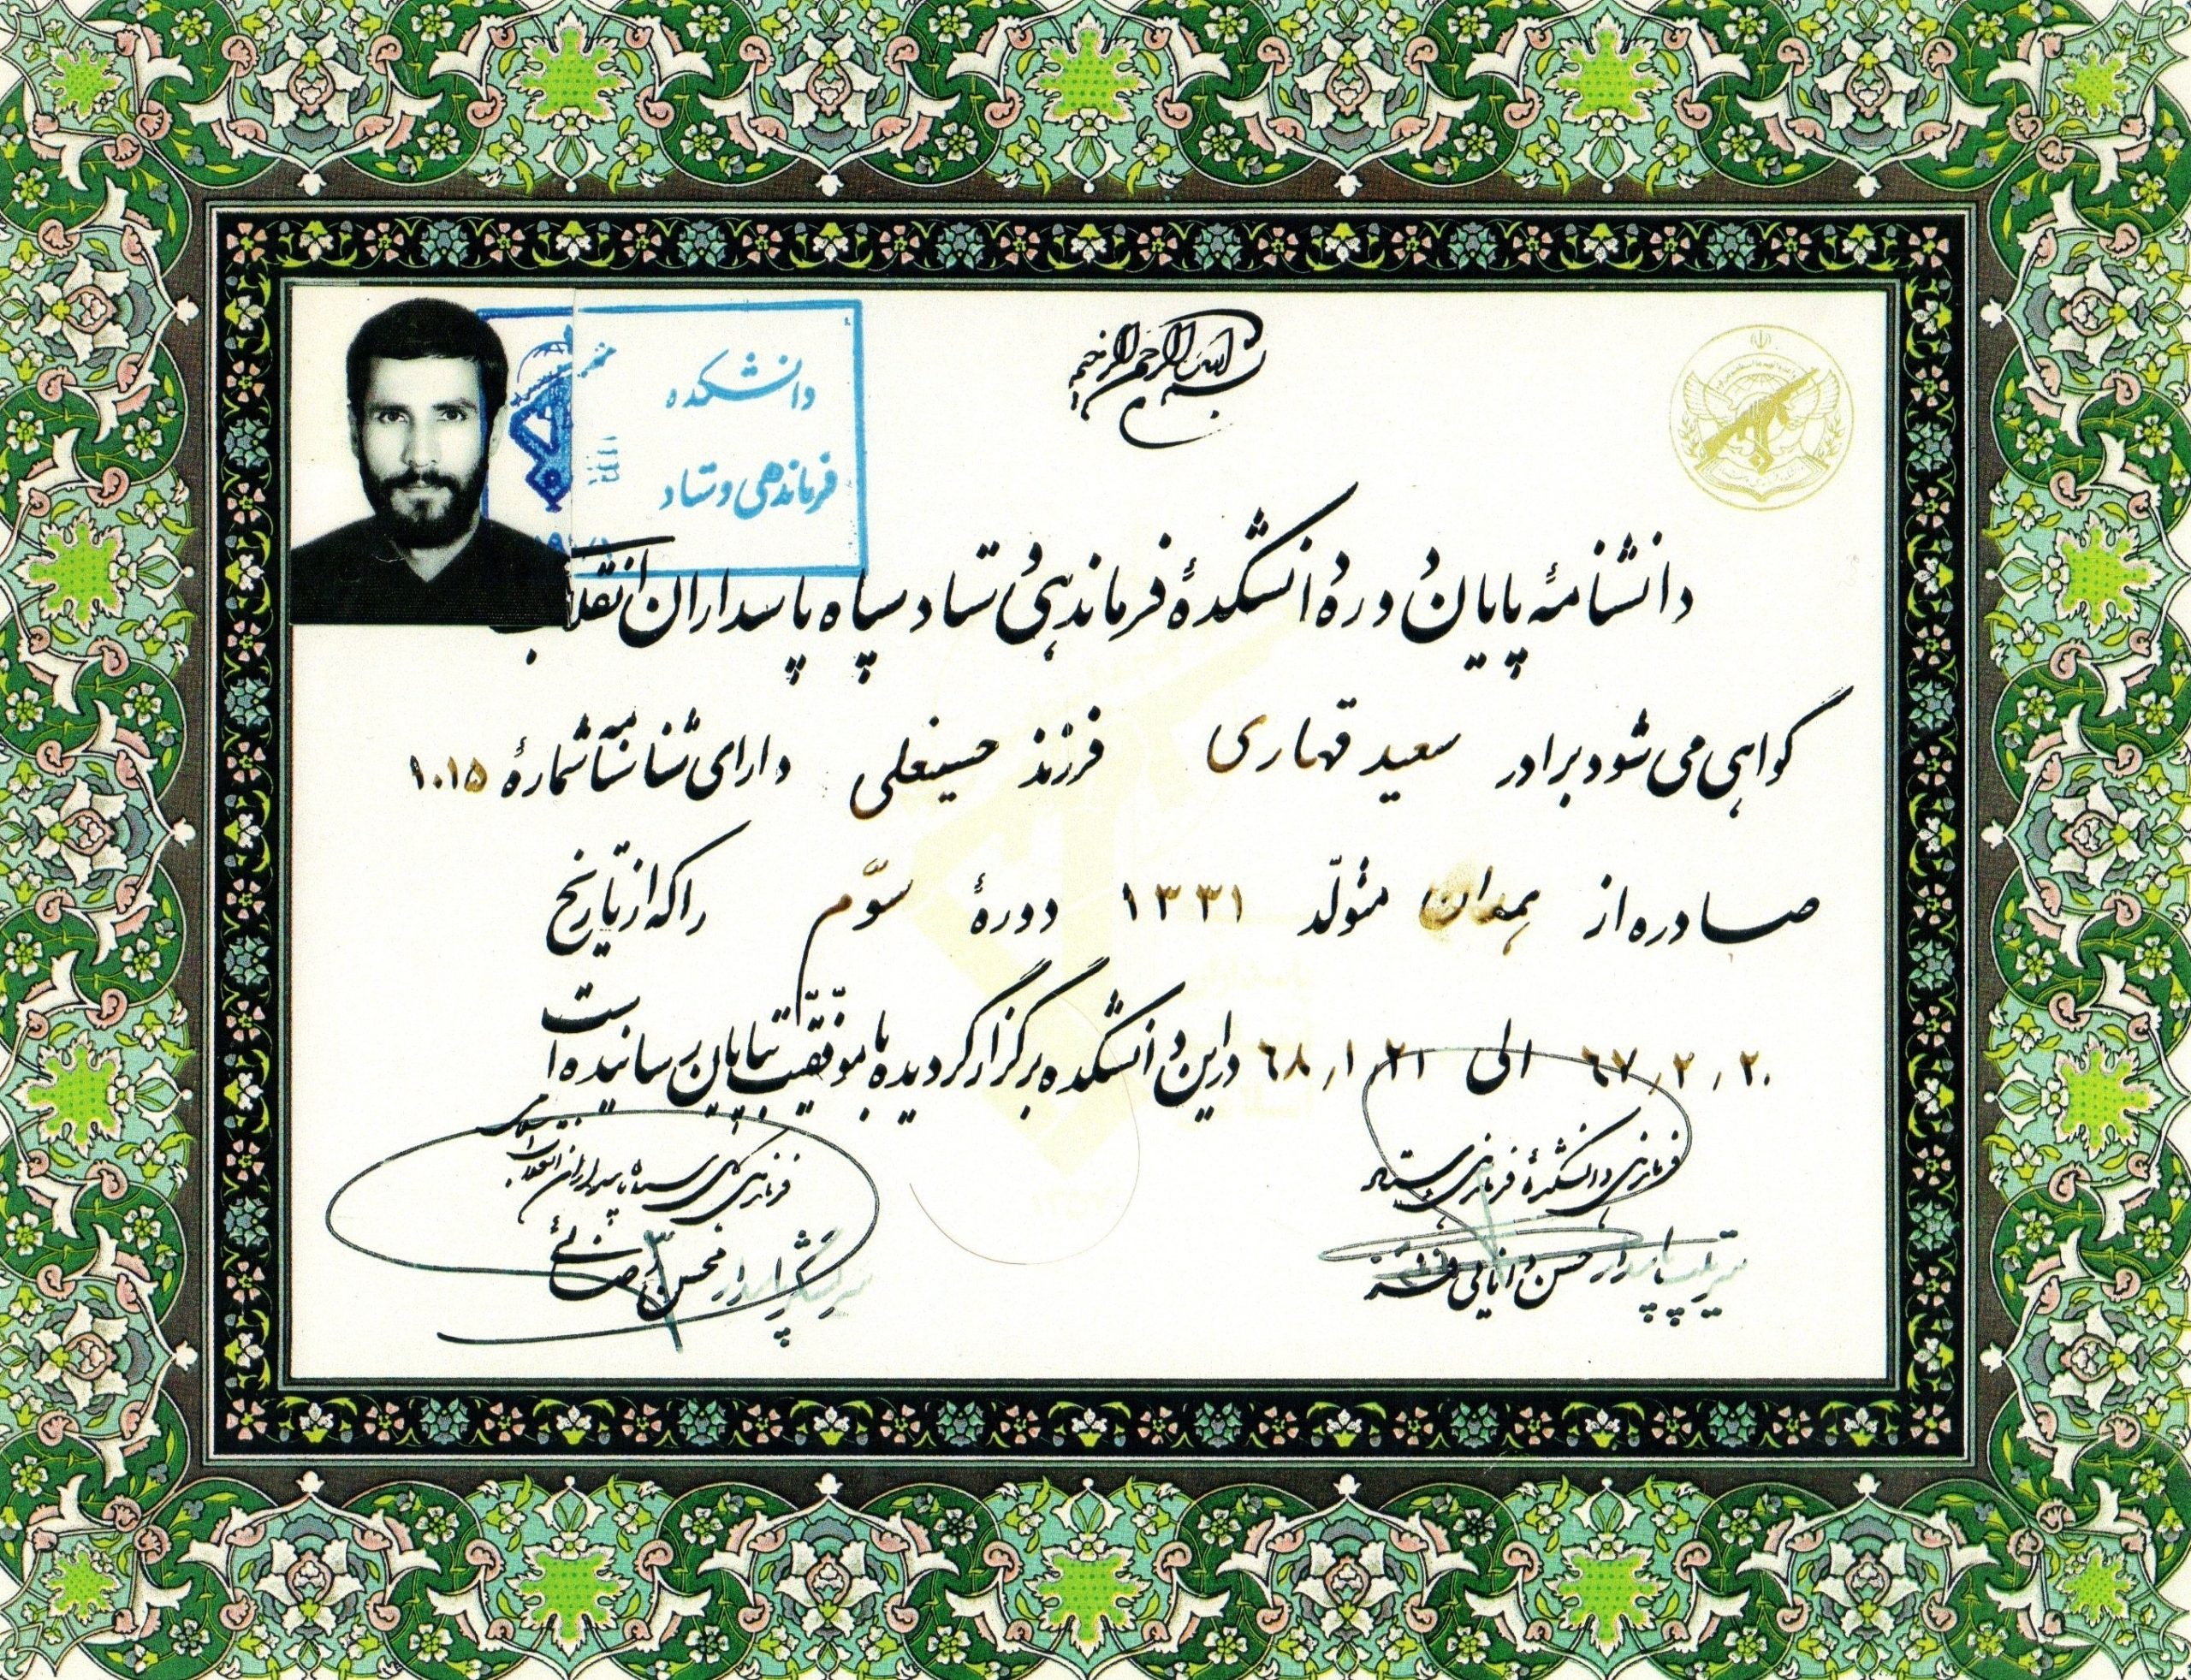 بسم الله الرحمن الرحیم
دانشکده
فرماندهی و ستاد
دانشنامهٔ پایان دورهٔ دانشکدهٔ فرماندهی و ستاد سپاه پاسداران انقلاب
گواهی می شود برادر سعید قهاری فرزند حسینعلی دارای شناسنامه شمارهٔ ۱۰۱۵
صادره از همدان متولّد ۱۳۳۱ دورهٔ سوّم را که از تاریخ
۶۷٫۲٫۲۰ الی ۶۸٫۱٫۲۱ در این دانشکده برگزار گردیده با موفّقیّت بپایان رسانیده است
فرماندهی دانشکدهٔ فرماندهی و ستاد
سرتیپ پاسدار حسن دانایی فر
فرماندهی کل سپاه پاسداران انقلاب اسلامی
سرلشگر پاسدار محسن رضائی